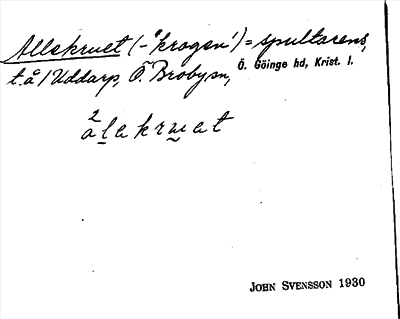 Allekruet (-"krogen")=spultarens,
t.å i Uddarp, Ö. Broby sn, Ö. Göinge hd, Krist. l.
2
alekruat
JOHN SVENSSON 1930